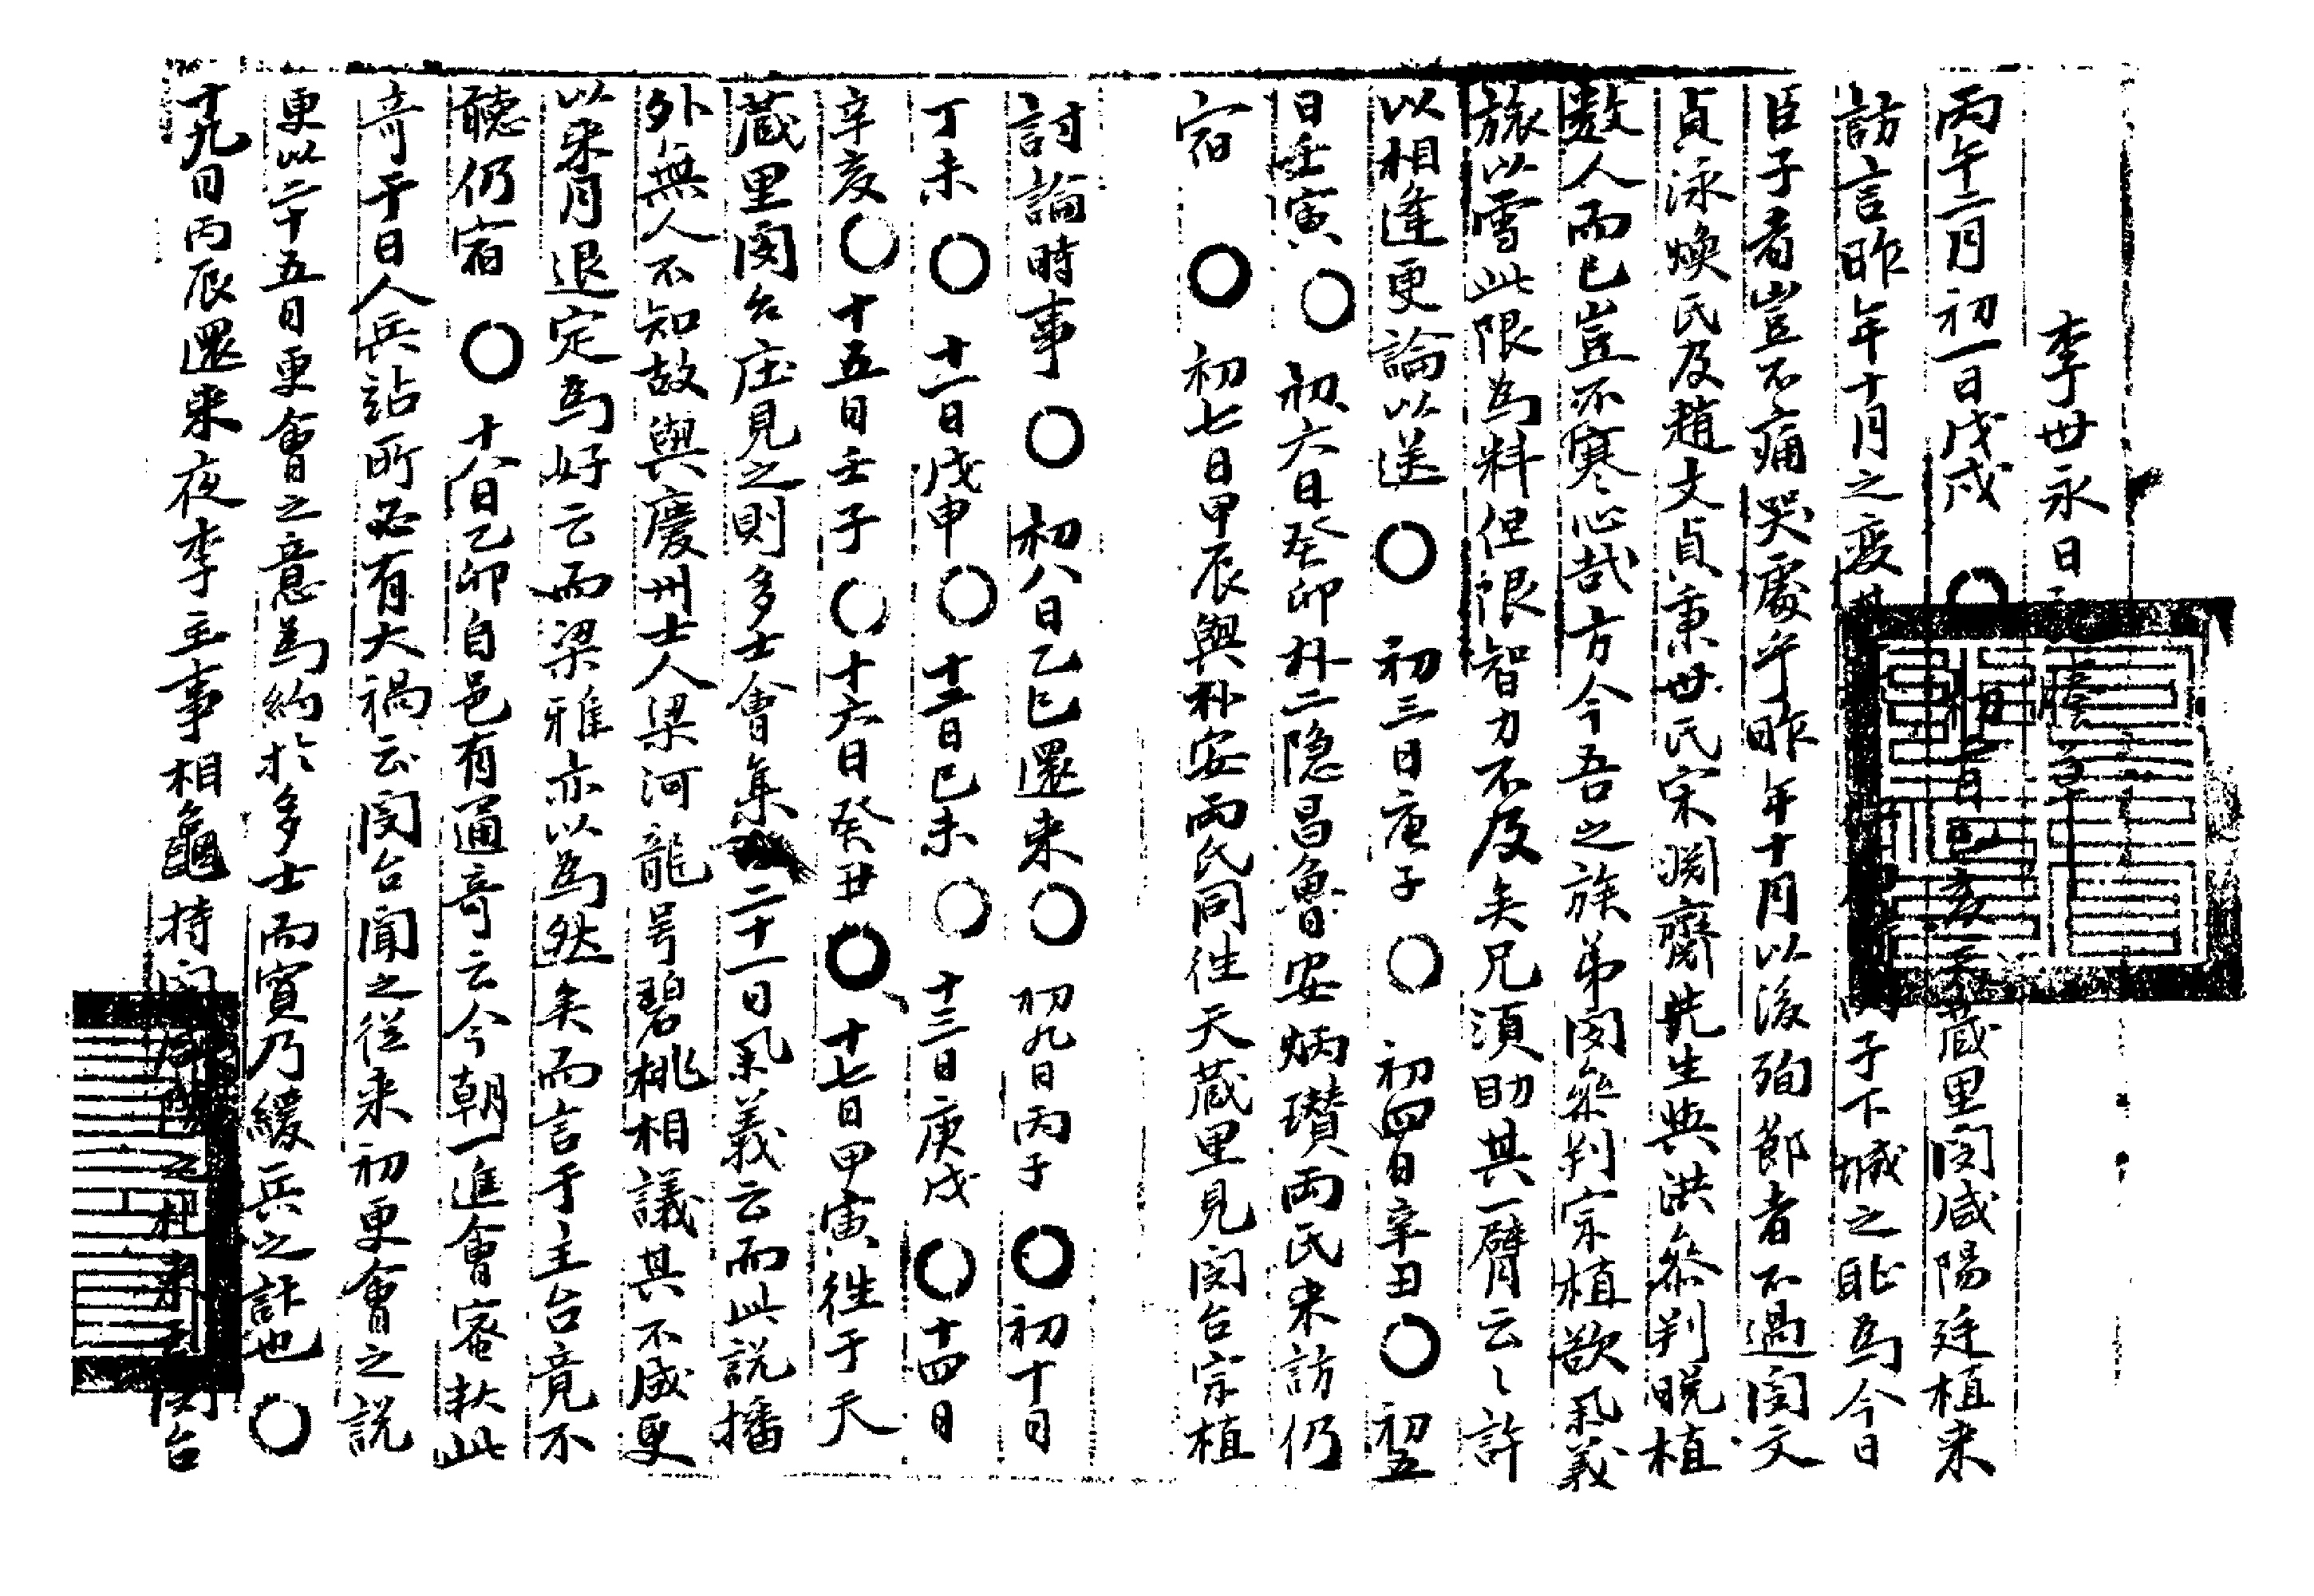 李世永日記謄草
丙午二月初一日戊戌〇初二日己亥天蔵里閔咸陽廷植来
訪言昨年十月之変其閔子下城之恥為今日
臣子者豈不痛哭處乎昨年十月以後殉節者不過閔文
貞泳煥氏及趙丈貞秉世氏宋淵齋先生與洪叅判晩植
数人而已豈不寒心哉方今吾之族弟閔叅判宗植欲㐲義
旅以雪此限為料但恨智力不及矣兄須助其一臂云〻許
以相逢更論以送〇初三日庚子〇初四日辛丑〇初五
日壬寅〇初六日癸卯朴二隐昌魯安炳瓚両氏来訪仍
宿〇初七日甲辰與朴安両氏同徃天蔵里見閔台宗植
討論時事〇初八日乙巳還来〇初九日丙子〇初十日
丁未〇十一日戊申〇十二日己未〇十三日庚戌〇十四日
辛亥〇十五日壬子〇十六日癸丑〇十七日甲寅徃于天
蔵里閔台庄見之則多士會集二十一日㐲義云而此説播
外無人不知故與慶州士人梁河龍号碧桃相議其不成更
以来月退定為好云而梁雅亦以為然矣而言于主台竟不
聽仍宿〇十八日乙卯自邑有通奇云今朝一進會密抶此
奇于日人兵站所必有大禍云閔台聞之従来初更會之説
更以二十五日更會之意為約於多士而實乃緩兵之計也〇
十九日丙辰還来夜李主事相龜持閔咸陽之札来到閔台